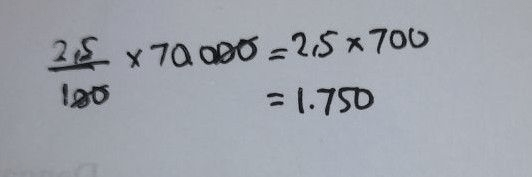 2,5/100 × 70.000 = 2,5 × 700
= 1.750